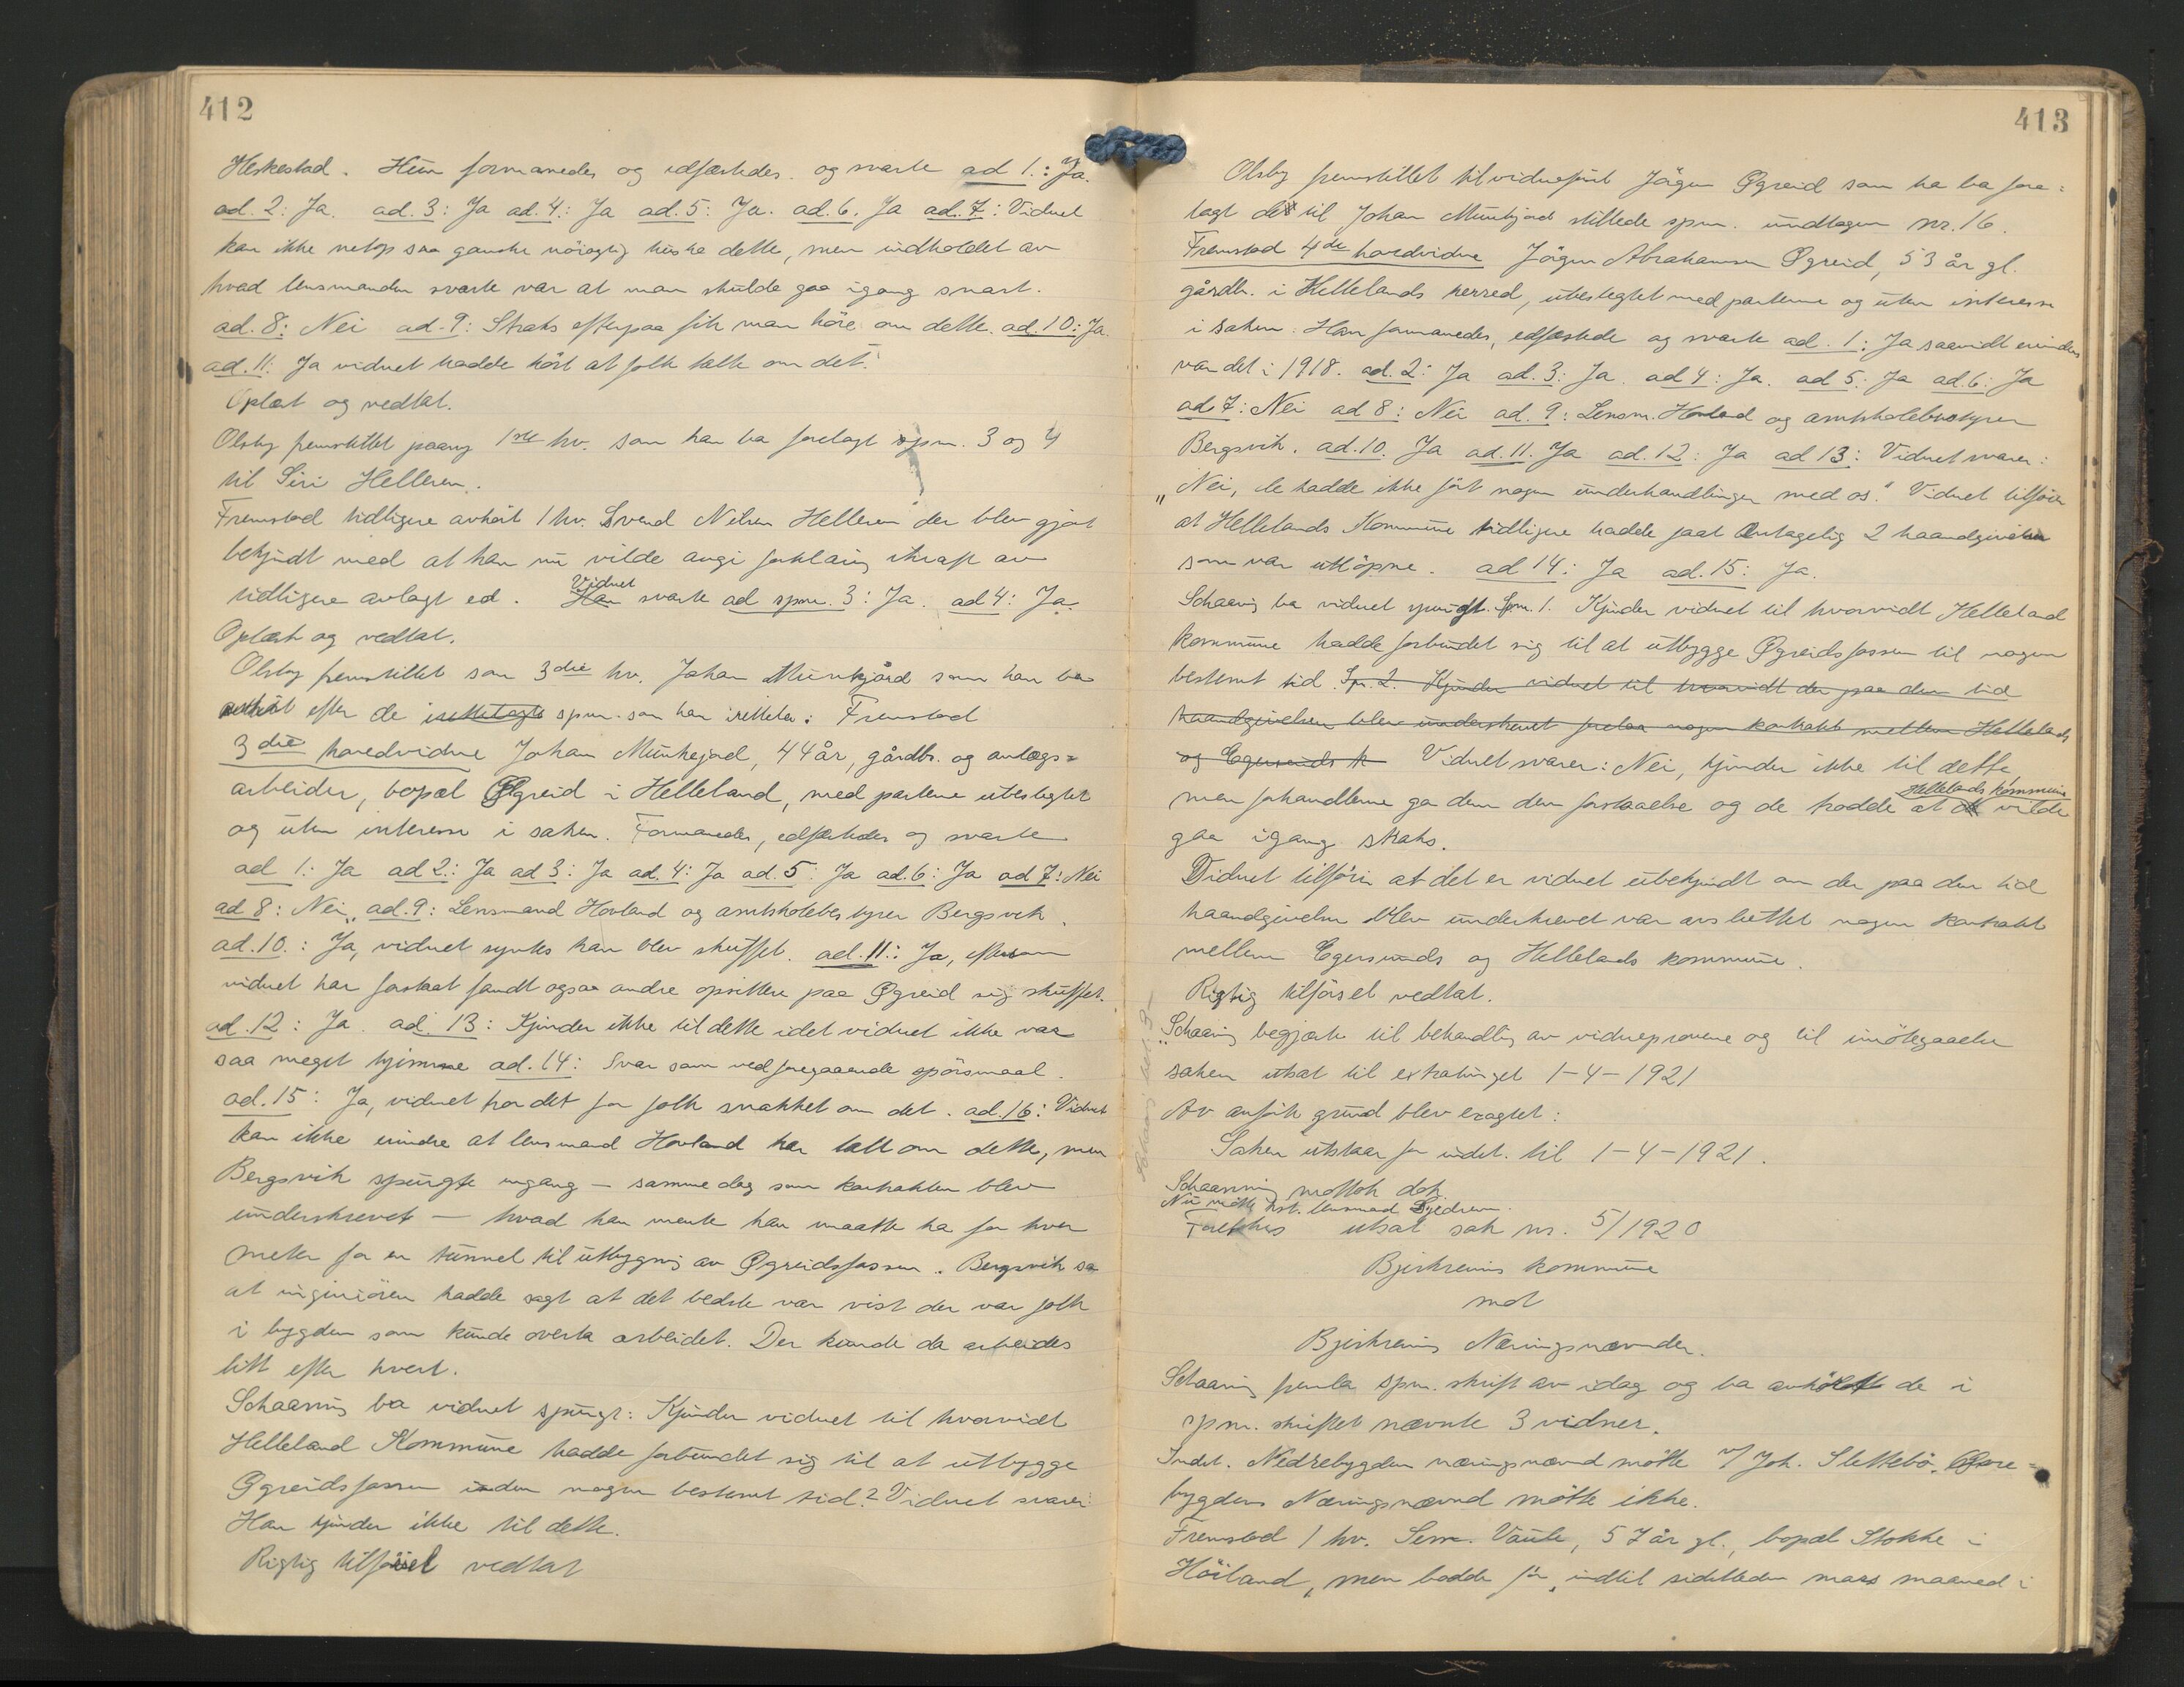 412
Heskestad. Hun formanedes og edfæstedes og svarte ad 1.: Ja.
ad. 2: Ja. ad. 3: Ja ad. 4: Ja ad. 5: Ja. ad. 6. Ja ad. 7: Vidnet
kan ikke netop saa ganske nöiagtig huske dette, men indholdet av
hvad lensmanden svarte var at man skulde gaa igang snart.
ad. 8: Nei ad. 9: Straks efterpaa fik man höre om dette. ad. 10: Ja.
ad. 11: Ja vidnet hadde hört at folk talte om det.
Oplæst og vedtat.
Olsby fremstillet paany 1ste hv. som han ba forelagt spm. 3 og 4
til Siri Helleren.
Fremstod tidligere avhört 1 hv. Svend Nilsen Helleren der blev gjort
bekjendt med at han nu vilde avgi forklaring ikraft av
tidligere avlagt ed. Han Vidnet svarte ad spm. 3: Ja. ad 4: Ja.
Oplæst og vedtat.
Olsby fremstillet som 3die hv. Johan Munkjård som han ba
avhört efter de spm. som han irettela: Fremstod
3die hovedvidne Johan Munkejord, 44 år, gårdbr. og anlægs=
arbeider, bopæl Øgreid i Helleland, med partene ubeslegtet
og uten interesse i saken. Formanedes, edfæstedes og svarte
ad 1: Ja ad 2: Ja ad 3: Ja ad. 4: Ja ad. 5: Ja ad. 6: Ja ad 7: Nei
ad 8: Nei, ad. 9: Lensmand Hovland og amtskolebestyrer Bergsvik.
ad. 10.: Ja, vidnet syntes han blev skuffet. ad. 11.: Ja, eftersom
vidnet har forstaat fandt ogsaa andre opsittere paa Øgreid sig skuffet.
ad. 12: Ja. ad. 13: Kjender ikke til dette idet vidnet ikke var
saa meget hjemme ad. 14: Svar som ved foregaaende spörsmaal.
ad. 15: Ja, vidnet hor det for folk snakket om det. ad. 16: Vidnet
kan ikke erindre at lensmand Hovland har talt om dette, men
Bergsvik spurgte engang – samme dag som kontrakten blev
underskrevet – hvad han mente han maatte ha for hver
meter for en tunnel til utbygning av Øgreidsfossen. Bergsvik sa
at ingeniören hadde sagt at det bedste var vist der var folk
i bygden som kunde overta arbeidet. Der kunde da arbeides
litt efter hvert.
Schaaning ba vidnet spurgt: Kjender vidnet til hvorvidt
Helleland Kommune hadde forbundet sig til at utbygge
Øgreidsfossen inden nogen bestemt tid? Vidnet svarer:
Han kjender ikke til dette.
Rigtig tilförsel vedtat
413
Olsby fremstillet til vidneførsel Jögen Øgreid som ha ba fore=
lagt de til Johan Munkjord stillede spm. undtagen nr. 16.
Fremstod 4de hovedvidne Jörgen Abrahamsen Øgreid, 53 år gl.
gårdbr. i Hellelands herred, ubeslegtet med partene og uten interesse
i saken. Han formanedes, edfæstede og svarte ad. 1: Ja saavidt erindres
var det i 1918. ad. 2: Ja ad. 3: Ja. ad 4: Ja. ad 5: Ja ad. 6: Ja
ad 7: Nei ad 8: Nei ad. 9: Lensm. Hovland og amtskolebestyrer
Bergsvik. ad. 10. Ja ad. 11. Ja ad. 12: Ja ad 13: Vidnet svarer:
"Nei, de hadde ikke fört nogen underhandlinger med os." Vidnet tilföier
at Hellelands Kommune tidligere hadde faat antagelig 2 haandgivelser
som var utlöpne. ad 14: Ja ad. 15: Ja.
Schaaning ba vidnet spurgt. Spm. 1. Kjender vidnet til hvorvidt Helleland
kommune hadde forbundet sig til at utbygge Øgreidsfossen til nogen
bestemt tid. Sp. 2. Kjender vidnet til hvorvidt der paa den tid
haandgivelsen blev underskrevet forelaa nogen kontrakt mellem Hellelands
og Egersunds k Vidnet svarer: Nei, kjender ikke til dette
men forhandlerne ga dem den forstaaelse og de trodde at Hellelands kommune vilde
gaa igang straks.
Vidnet tilföier at det er vidnet ubekjendt om der paa den tid
haandgivelsen blev underskrevet var avsluttet nogen kontrakt
mellem Egersunds og Hellelands kommune.
Rigtig tilförsel vedtat.
Schaaning begjærte til behandling av vidneprovene og til imötegaaelse
saken utsat til extratinget 1-4-1921
Av anfört grund blev eragtet:
Saken utstaar for indst. til 1-4-1921.
Schaanning mottok dok.
Nu mötte kst. lensmand
Foretokes utsat sak nr. 5/1920
Bjerkreims kommune
mot
Bjerkreims Næringsnævnder.
Schaaning fremla spm. skrift av idag og ba avhört de i
spm. skriftet nævnte 3 vidner.
Indst. Nedrebygden næringsnævnd mötte v/ Joh. Slettebö. Øvre=
bygdens Næringsnævnd mötte ikke.
Fremstod 1 hv. Vaule, 57 år gl., bopæl Stokke i
Höiland, men bodde för indtil sidstleden mars maaned i